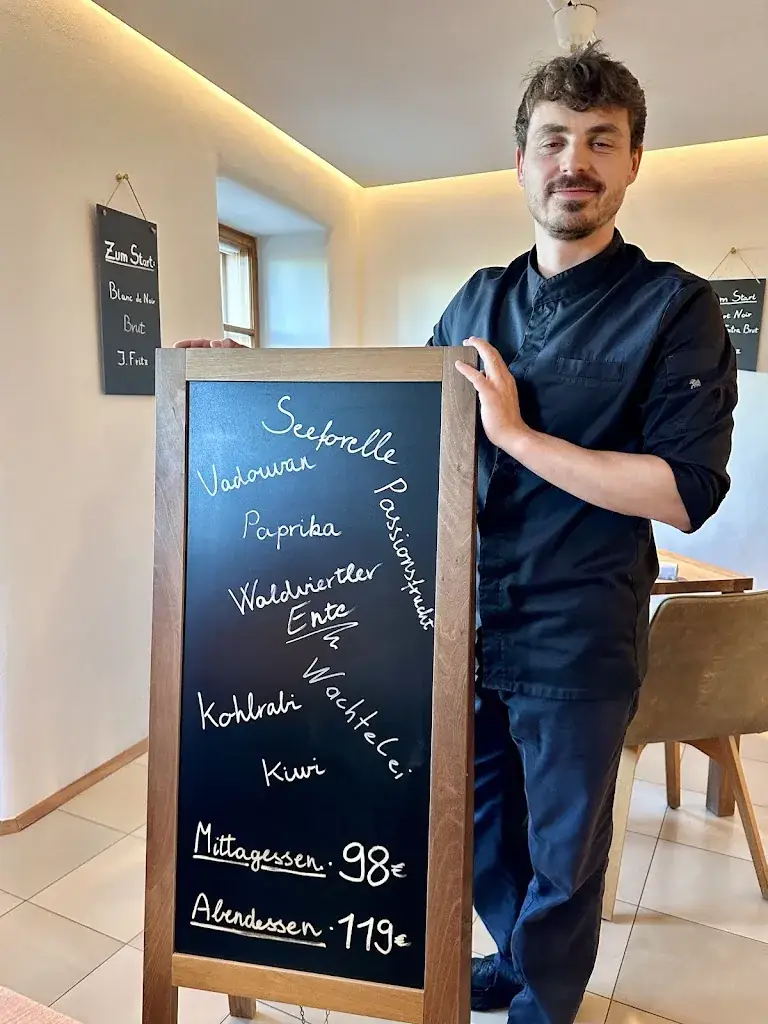 Zum Start:
Blanc de Noir
Brut
J. Fritz
m Start
Noir
Extra Brut
Seeforelle
Vadouvan
Passionsfrucht
Paprika
Waldviertler
Ente
Wachtelei
Kohlrabi
Kiwi
Mittagessen · 98€
Abendessen · 119€